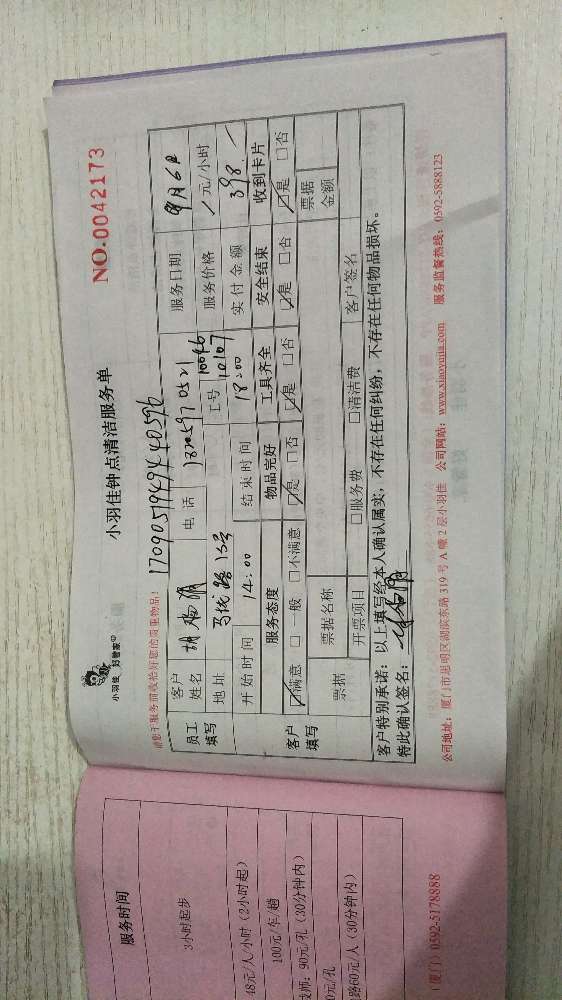 小羽佳 好管家
小羽佳钟点清洁服务单
NO.0042173
请您于服务前收拾好您的贵重物品!
17090519494440596
员工填写
客户姓名
电话
服务日期 9月6日
地址
工号 10046 10107
服务价格 元/小时
开始时间 14:00
结束时间 18:00
实付金额 398
客户填写
服务态度 物品完好 工具齐全 安全结束 收到卡片
☑满意 □一般 □不满意 ☑是 □否 ☑是 □否 ☑是 □否 ☑是 □否
票据 票据名称 票据金额
开票项目 □服务费 □清洁费 客户签名
客户特别承诺:以上填写经本人确认属实,不存在任何纠纷,不存在任何物品损坏。
特此确认签名:
公司地址:厦门市思明区湖滨东路319号A幢2层小羽佳 公司网站:www.xiaoyujia.com 服务监督热线:0592-5888123
服务时间
3小时起步
48元/人/小时(2小时起)
100元/车/趟
90元/孔(30分钟内)
0元/孔
60元/人(30分钟内)
(厦门)0592-5178888